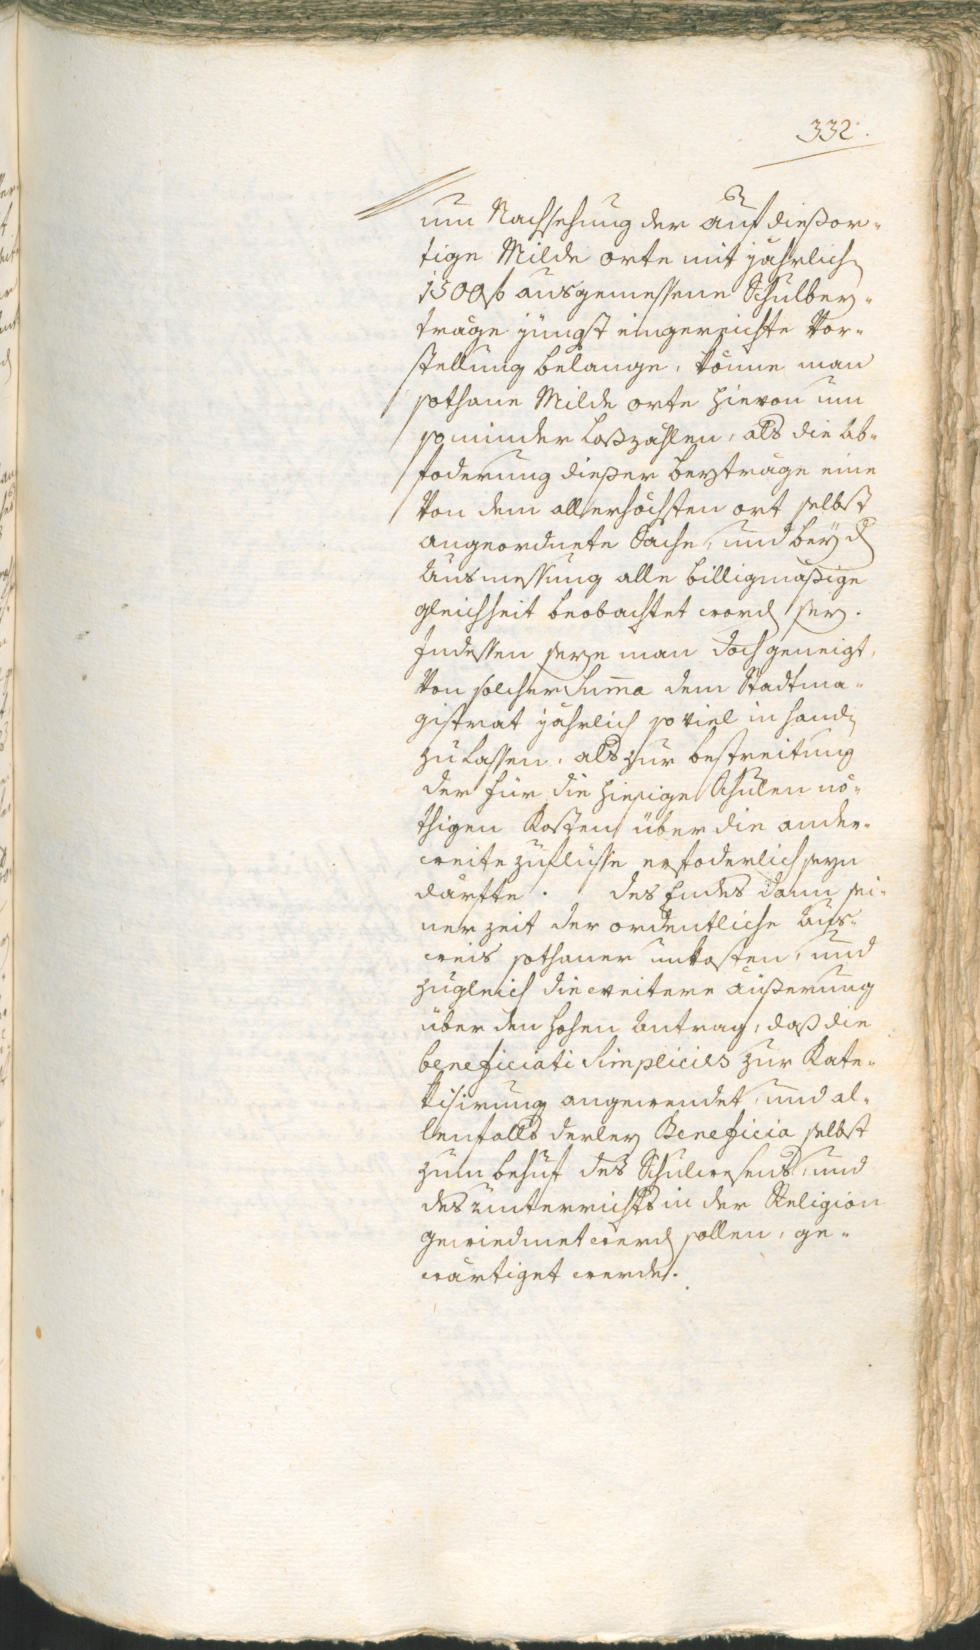 332.
um Nachsehung der auf dießor-
tige Milde orte mit jährlich
1500 f ausgemessene Schulbey-
träge jüngst eingereichte Vor-
stellung belange, könne man
sothane Milde orte hievon um
so minder loszählen, als die Ab-
foderung dießer beyträge eine
von dem allerhöchsten ort selbst
angeordnete Sache, und bey d
Ausmessung alle billigmäßige
gleichheit beobachtet word sey.
Indessen seye man doch geneigt,
von solcher Suma dem Stadtma-
gistrat jährlich so viel in hand
zu lassen, als zur bestreitung
der für die hiesige Schulen nö-
thigen Kosten über die ander-
weite zuflüsse erfoderlich seyn
därfte. des Endes dann sei-
ner zeit der ordentliche Aus-
weis sothaner unkosten, und
zugleich die weitere äußerung
über den hohen Antrag, daß die
beneficiati Simplices zur Kate-
kisirung angewendet, und al-
lenfalls derley Beneficia selbst
zum behuf des Schulwesens, und
des unterrichts in der Religion
gewiedmet werd sollen, ge-
wärtiget werde.